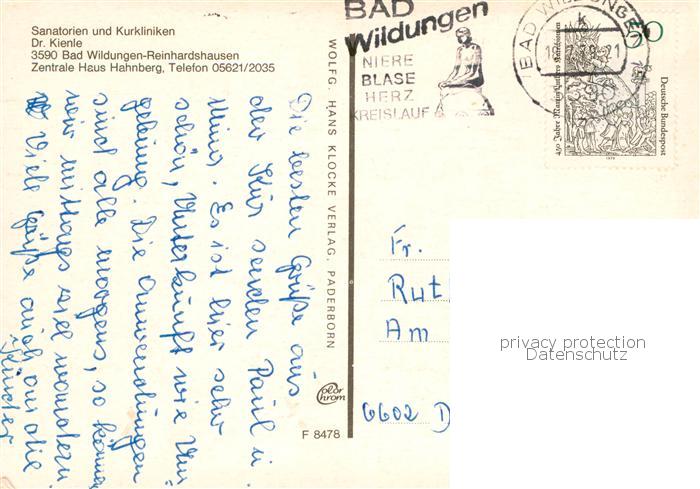 Sanatorien und Kurkliniken
Dr. Kienle
3590 Bad Wildungen-Reinhardshausen
Zentrale Haus Hahnberg, Telefon 05621/2035
Die besten Grüße aus
der Kur senden Paul u.
Minna. Es ist hier sehr
schön, Unterkunft wie Um-
gebung. Die Anwendungen
sind alle morgens, so können
wir mittags viel wandern
Viele Grüße auch an die
Kinder
WOLFG. HANS KLOCKE VERLAG, PADERBORN
Color Chrom
F 8478
BAD
Wildungen
NIERE
BLASE
HERZ
KREISLAUF
BAD WILDUNGEN
k
50
450 Jahre Marburger
Deutsche Bundespost
1979
Fr.
Rut
Am
6602 D
privacy protection
Datenschutz